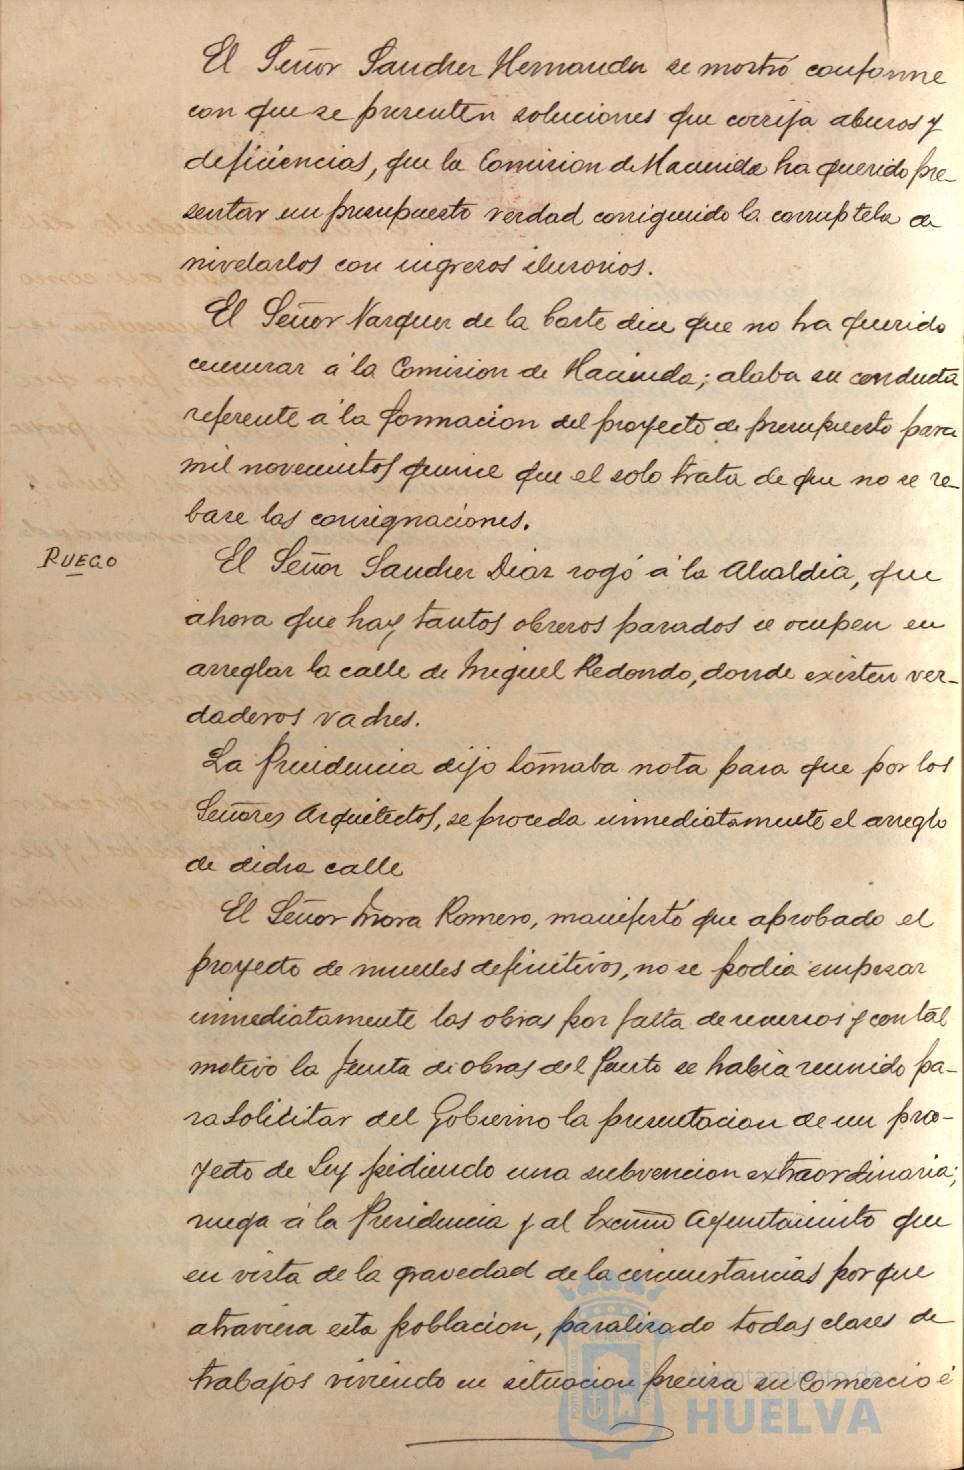 El Señor Sanchez Hernandez se mostró conforme
con que se presenten soluciones que corrija abusos y
deficiencias, que la Comision de Hacienda ha querido pre-
sentar un presupuesto verdad corrigiendo la corruptela de
nivelarlos con ingresos ilusorios.
El Señor Vazquez de la Corte dice que no ha querido
censurar á la Comision de Hacienda; alaba su conducta
referente á la formacion del proyecto de presupuesto para
mil novecientos quince que el solo trata de que no se re-
base las consignaciones.
RUEGO
El Señor Sanchez Diaz rogó á la Alcaldia, que
ahora que hay tantos obreros parados se ocupen en
arreglar la calle de Miguel Redondo, donde existen ver-
daderos vaches.
La Presidencia dijo tomaba nota para que por los
Señores Arquitectos, se proceda inmediatamente el arreglo
de dicha calle
El Señor Mora Romero, manifestó que aprobado el
proyecto de muelles definitivos, no se podia empezar
inmediatamente las obras por falta de recursos y con tal
motivo la Junta de obras del Puerto se habia reunido pa-
ra solicitar del Gobierno la presentacion de un pro-
yecto de Ley pidiendo una subvencion extraordinaria;
ruega á la Presidencia y al Excmo Ayuntamiento que
en vista de la gravedad de la circunstancias por que
atraviesa esta poblacion, paralizado todas clases de
trabajos viviendo en situacion precisa su Comercio é
Ayuntamiento de
HUELVA